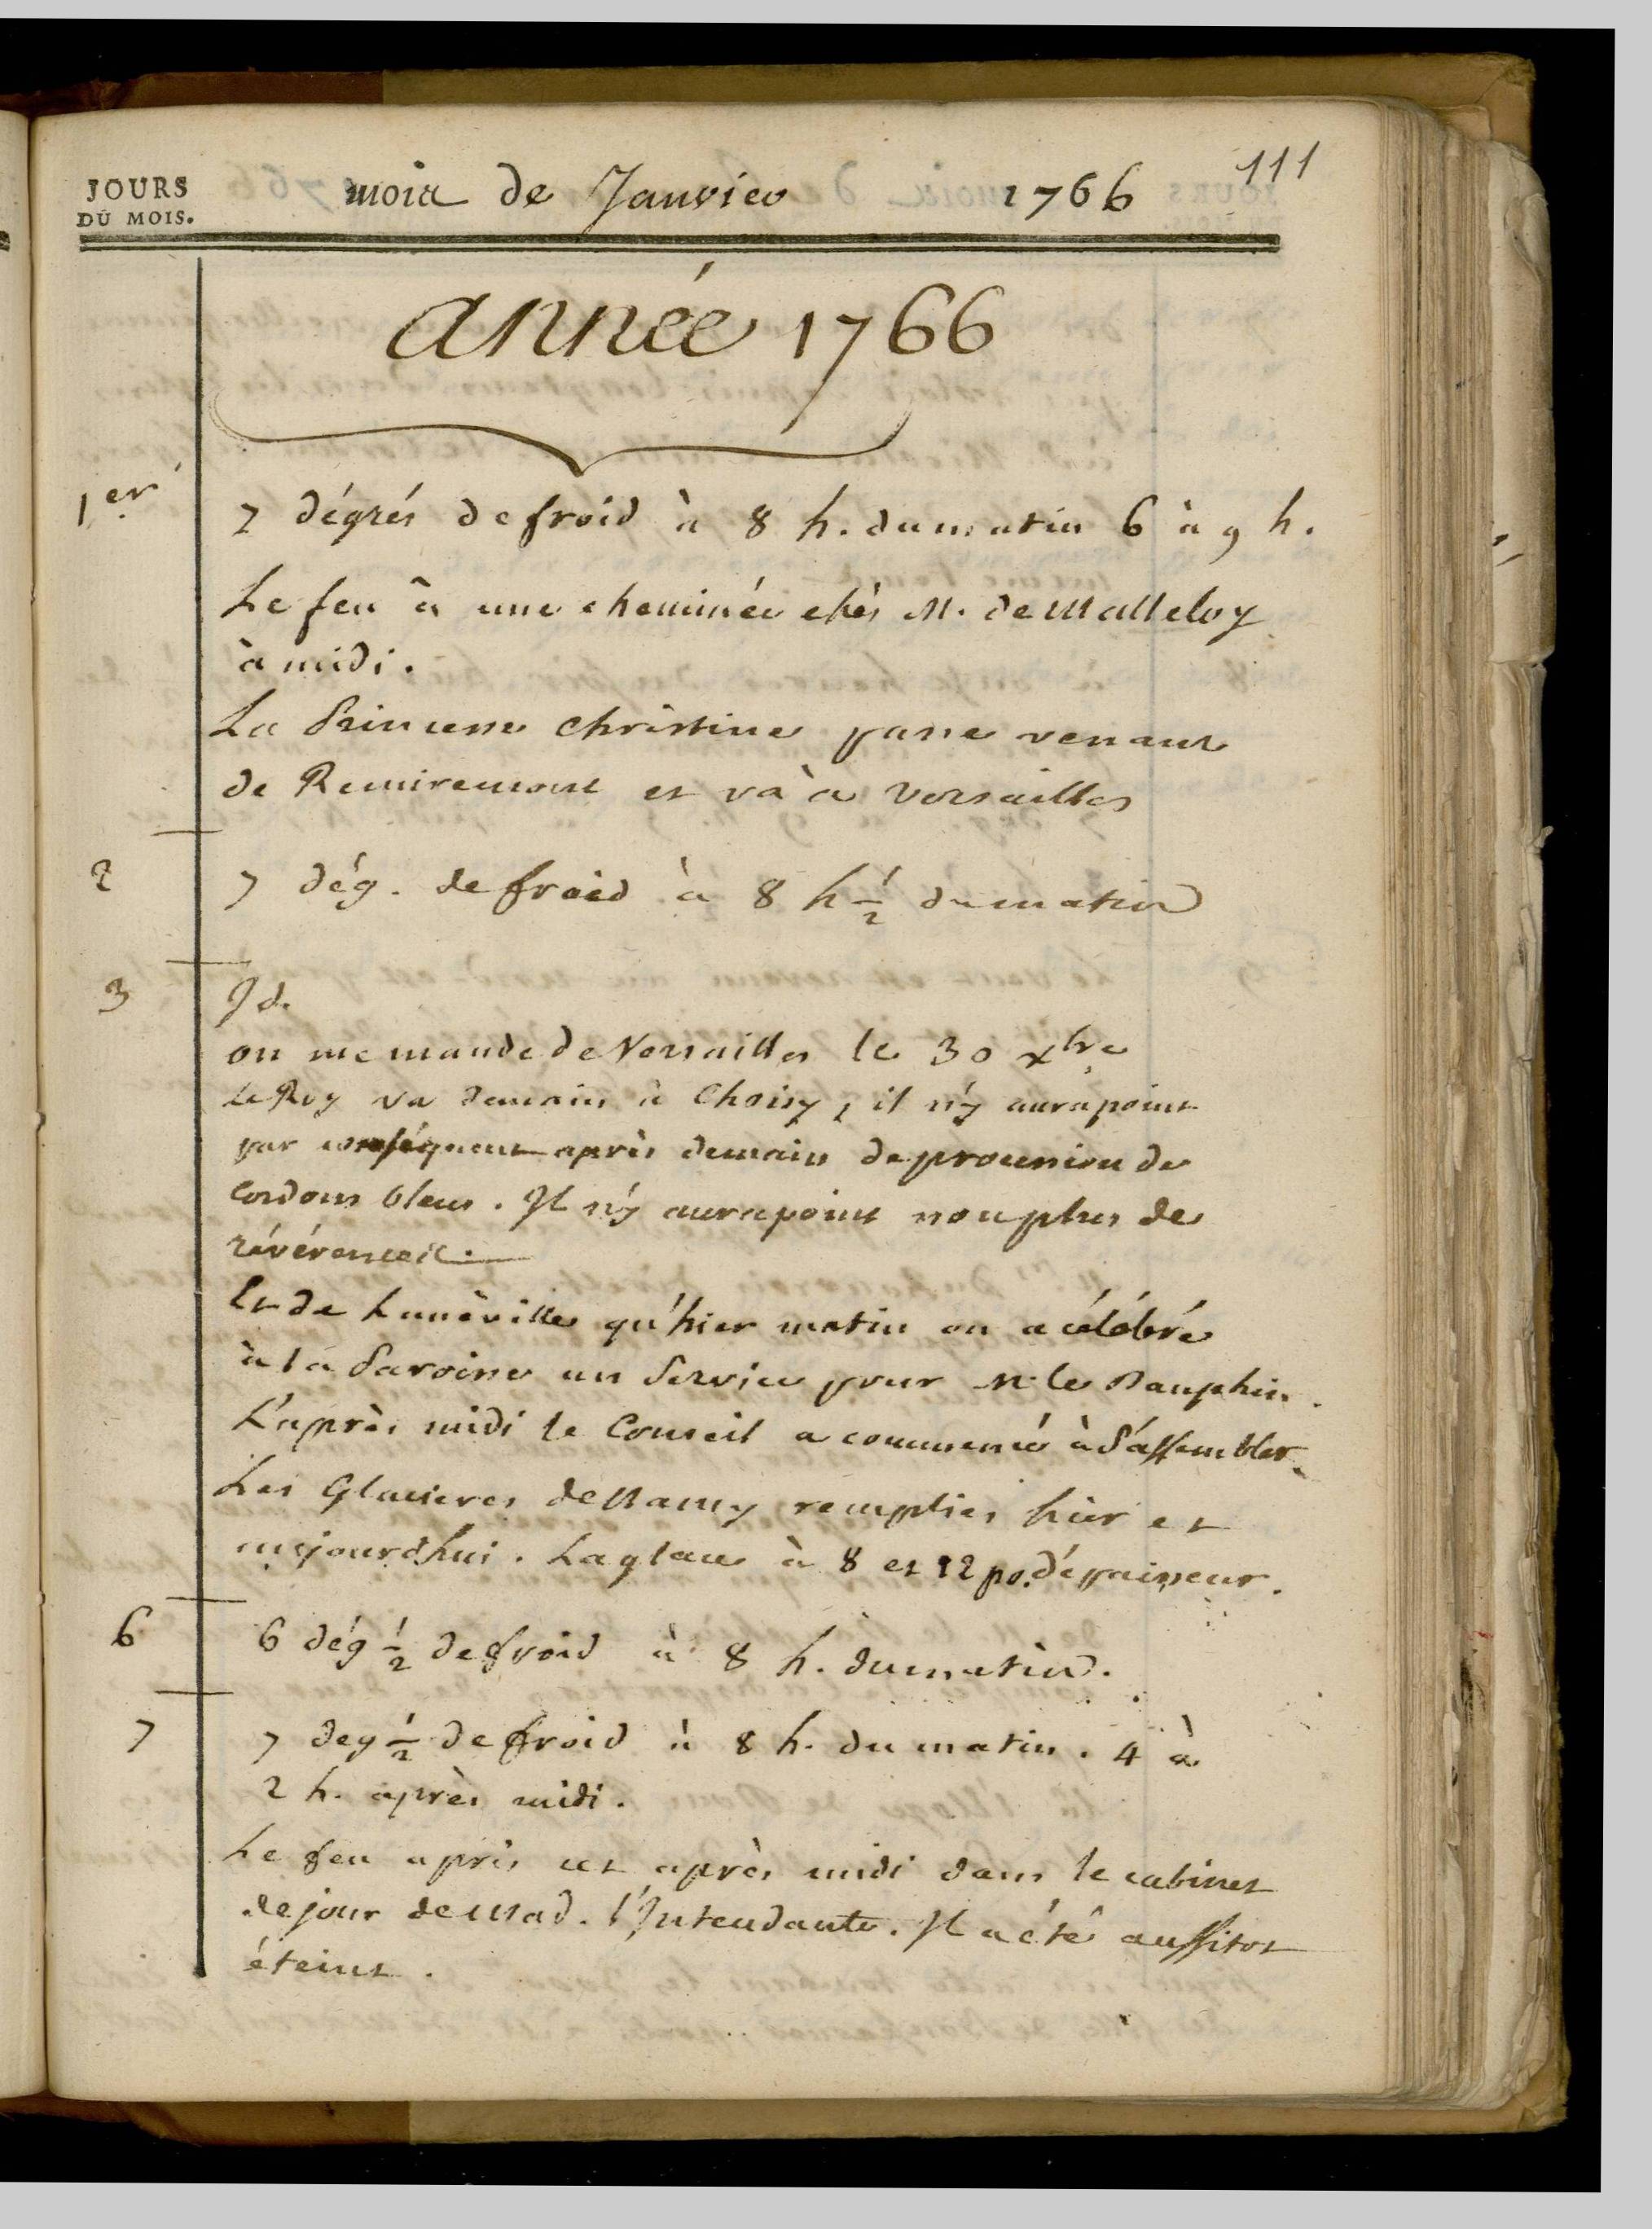 111
JOURS
DU MOIS.
mois de Janvier 1766
année 1766
1er 7 dégrés de froid à 8 h. du matin 6 à 9 h.
Le feu à une cheminée chés M. de Malleloy
à midi.
La Princesse Christine passe venant
de Remiremont et va à Versailles
2 7 dég. de froid à 8 h 1/2 du matin
3 Id.
on me mande de Versailles le 30 xbre
Le Roy va demain à Choisy, il n'y aura point
par conséquent après demain de procession de
Cordons bleus. Il n'y aura point non plus de
révérences.
Et de Lunéville qu'hier matin on a célébré
à la Paroisse un Service pour M. le Dauphin.
L'après midi le Conseil a commencé à s'assembler.
Les Glacieres de Nancy remplies hier et
aujourdhui. La glace à 8 et 12 po. d'épaisseur.
6 6 dég 1/2 de froid à 8 h. du matin.
7 7 deg 1/2 de froid à 8 h. du matin. 4 à
2 h. après midi.
Le feu a pris cet après midi dans le cabinet
de jour de Mad. l'Intendante. Il a été aussitot
éteint.